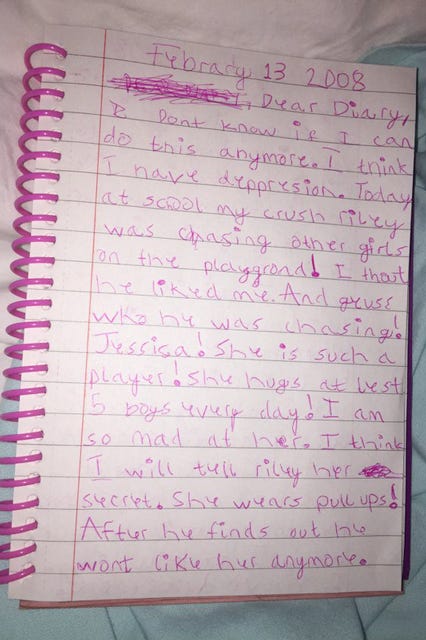 Febrary 13 2008
Dear Diary,
I Dont know if I can
do this anymore. I think
I have deppresion. Today
at scool my crush riley
was chasing other girls
on the playgrond! I thoat
he liked me. And gruss
who he was chasing!
Jessica! She is such a
player! She hugs at lest
5 boys every day! I am
so mad at her. I think
I will tell riley her
secret. She wears pull ups!
After he finds out he
wont like her anymore.